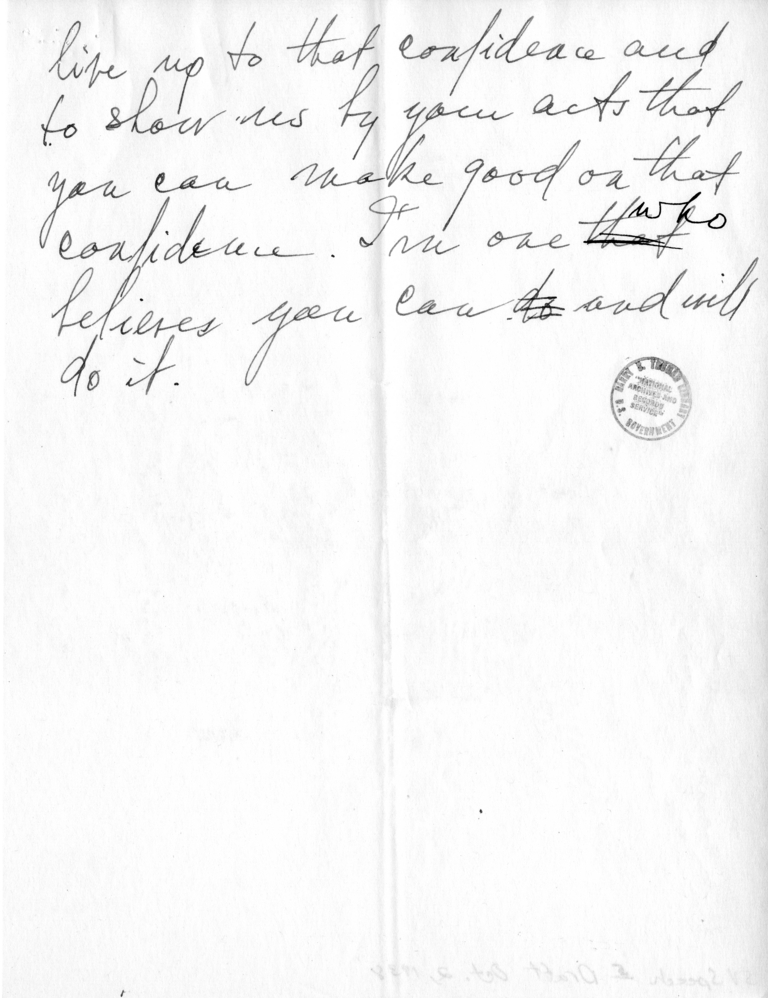 live up to that confidence and
to show us by your acts that
you can make good on that
confidence. I'm one that who
believes you can do and will
do it.
HARRY S. TRUMAN LIBRARY
"NATIONAL
ARCHIVES AND
RECORDS
SERVICE"
U.S. GOVERNMENT
Speech Draft Oct. 2, 1938